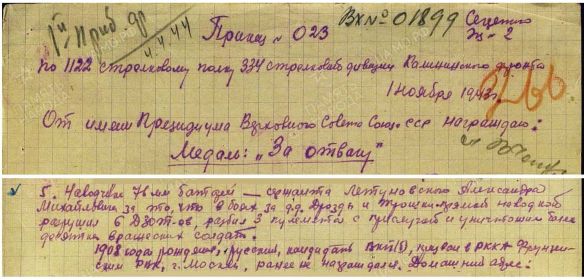 Вх № 01899
Секретно
Эк - 2
1й Приб др
4.4.44
Приказ № 023
По 1122 стрелковому полку 334 стрелковой дивизии Калининского фронта
1 Ноября 1943 г.
От имени Президиума Верховного Совета Союза ССР награждаю:
Медаль: „За отвагу"
5. Наводчика 76 мм батареи — сержанта Летуновского Александра
Михайловича за то, что в боях за д.д. Дрозды и Трошки прямой наводкой
разрушил 6 Дзот-ов, разбил 3 пулемета с прислугой и уничтожил более
десятка вражеских солдат.
1908 года рождения, русский, кандидат ВКП(б), призван в РККА Фрунзен-
ским РВК, г. Москвы, ранее не награждался. Домашний адрес: